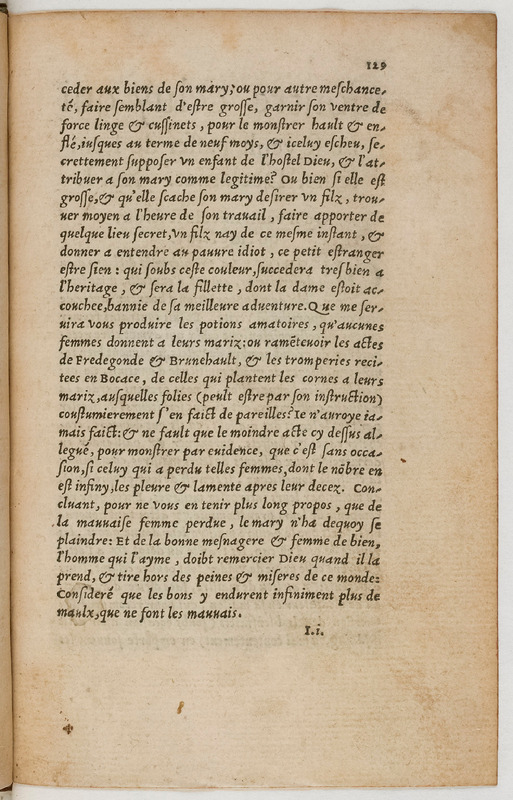 129
ceder aux biens de ſon mary; ou pour autre meſchance-
té, faire ſemblant d'eſtre groſſe, garnir ſon ventre de
force linge & cuſsinets, pour le monſtrer hault & en-
flé, iuſques au terme de neuf moys, & iceluy eſcheu, ſe-
crettement ſuppoſer vn enfant de l'hoſtel Dieu, & l'at-
tribuer a ſon mary comme legitime? Ou bien ſi elle eſt
groſſe, & qu'elle ſcache ſon mary deſirer vn filz, trou-
uer moyen a l'heure de ſon trauail, faire apporter de
quelque lieu ſecret, vn filz nay de ce meſme inſtant, &
donner a entendre au pauure idiot, ce petit eſtranger
eſtre ſien: qui ſoubs ceſte couleur, ſuccedera treſbien a
l'heritage, & ſera la fillette, dont la dame eſtoit ac-
couchee, bannie de ſa meilleure aduenture. Que me ſer-
uira vous produire les potions amatoires, qu'aucunes
femmes donnent a leurs mariz: ou ramẽteuoir les actes
de Fredegonde & Brunehault, & les tromperies reci-
tees en Bocace, de celles qui plantent les cornes a leurs
mariz, auſquelles folies (peult eſtre par ſon inſtruction)
couſtumierement ſ'en faict de pareilles? Ie n'auroye ia-
mais faict: & ne fault que le moindre acte cy deſſus al-
legué, pour monſtrer par euidence, que c'eſt ſans occa-
ſion, ſi celuy qui a perdu telles femmes, dont le nõbre en
eſt infiny, les pleure & lamente apres leur decez. Con-
cluant, pour ne vous en tenir plus long propos, que de
la mauuaiſe femme perdue, le mary n'ha dequoy ſe
plaindre: Et de la bonne meſnagere & femme de bien,
l'homme qui l'ayme, doibt remercier Dieu quand il la
prend, & tire hors des peines & miſeres de ce monde:
Conſideré que les bons y endurent infiniment plus de
maulx, que ne font les mauuais.
I.i.